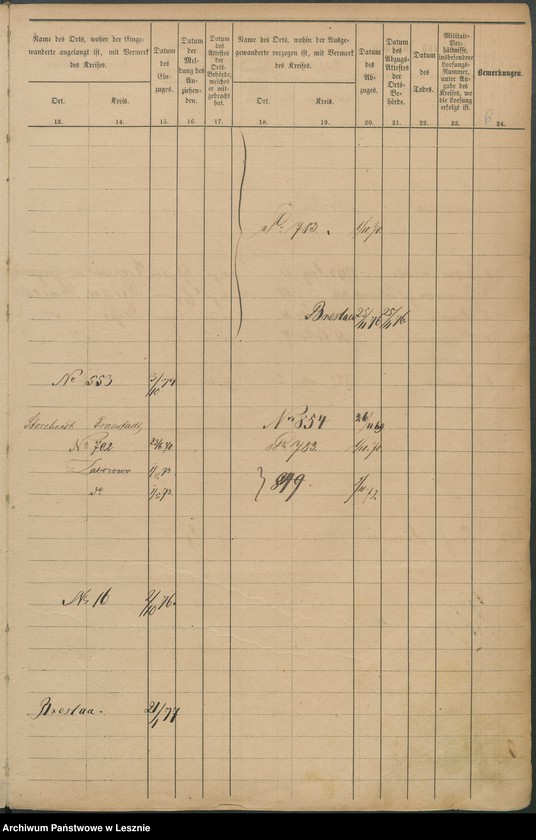 Name des Orts, woher der Einge-
wanderte angelangt ist, mit Vermerk
des Kreises.
Ort.
Kreis.
Datum
des
Ein-
zuges.
Datum
der
Mel-
dung des
An-
ziehen-
den.
Datum
des
Attestes
der
Orts-
Behörde,
welches
er mit-
gebracht
hat.
Name des Orts, wohin der Ausge-
gewanderte verzogen ist, mit Vermerk
des Kreises.
Ort.
Kreis.
Datum
des
Ab-
zuges.
Datum
des
Abzugs-
Attestes
der
Orts-
Be-
hörde.
Datum
des
Todes.
Militair-
Ver-
hältnisse,
insbesondere
Loosungs-
Nummer,
unter An-
gabe des
Kreises, wo
die Loosung
erfolgt ist.
Bemerkungen.
13. 14. 15. 16. 17. 18. 19. 20. 21. 22. 23. 24.
6
No. 783.
Breslau
No 553
No 854
No 702
No 783.
Zaborowo
do
849.
No 16 2/10 76.
Breslau. 21/1 77
Archiwum Państwowe w Lesznie